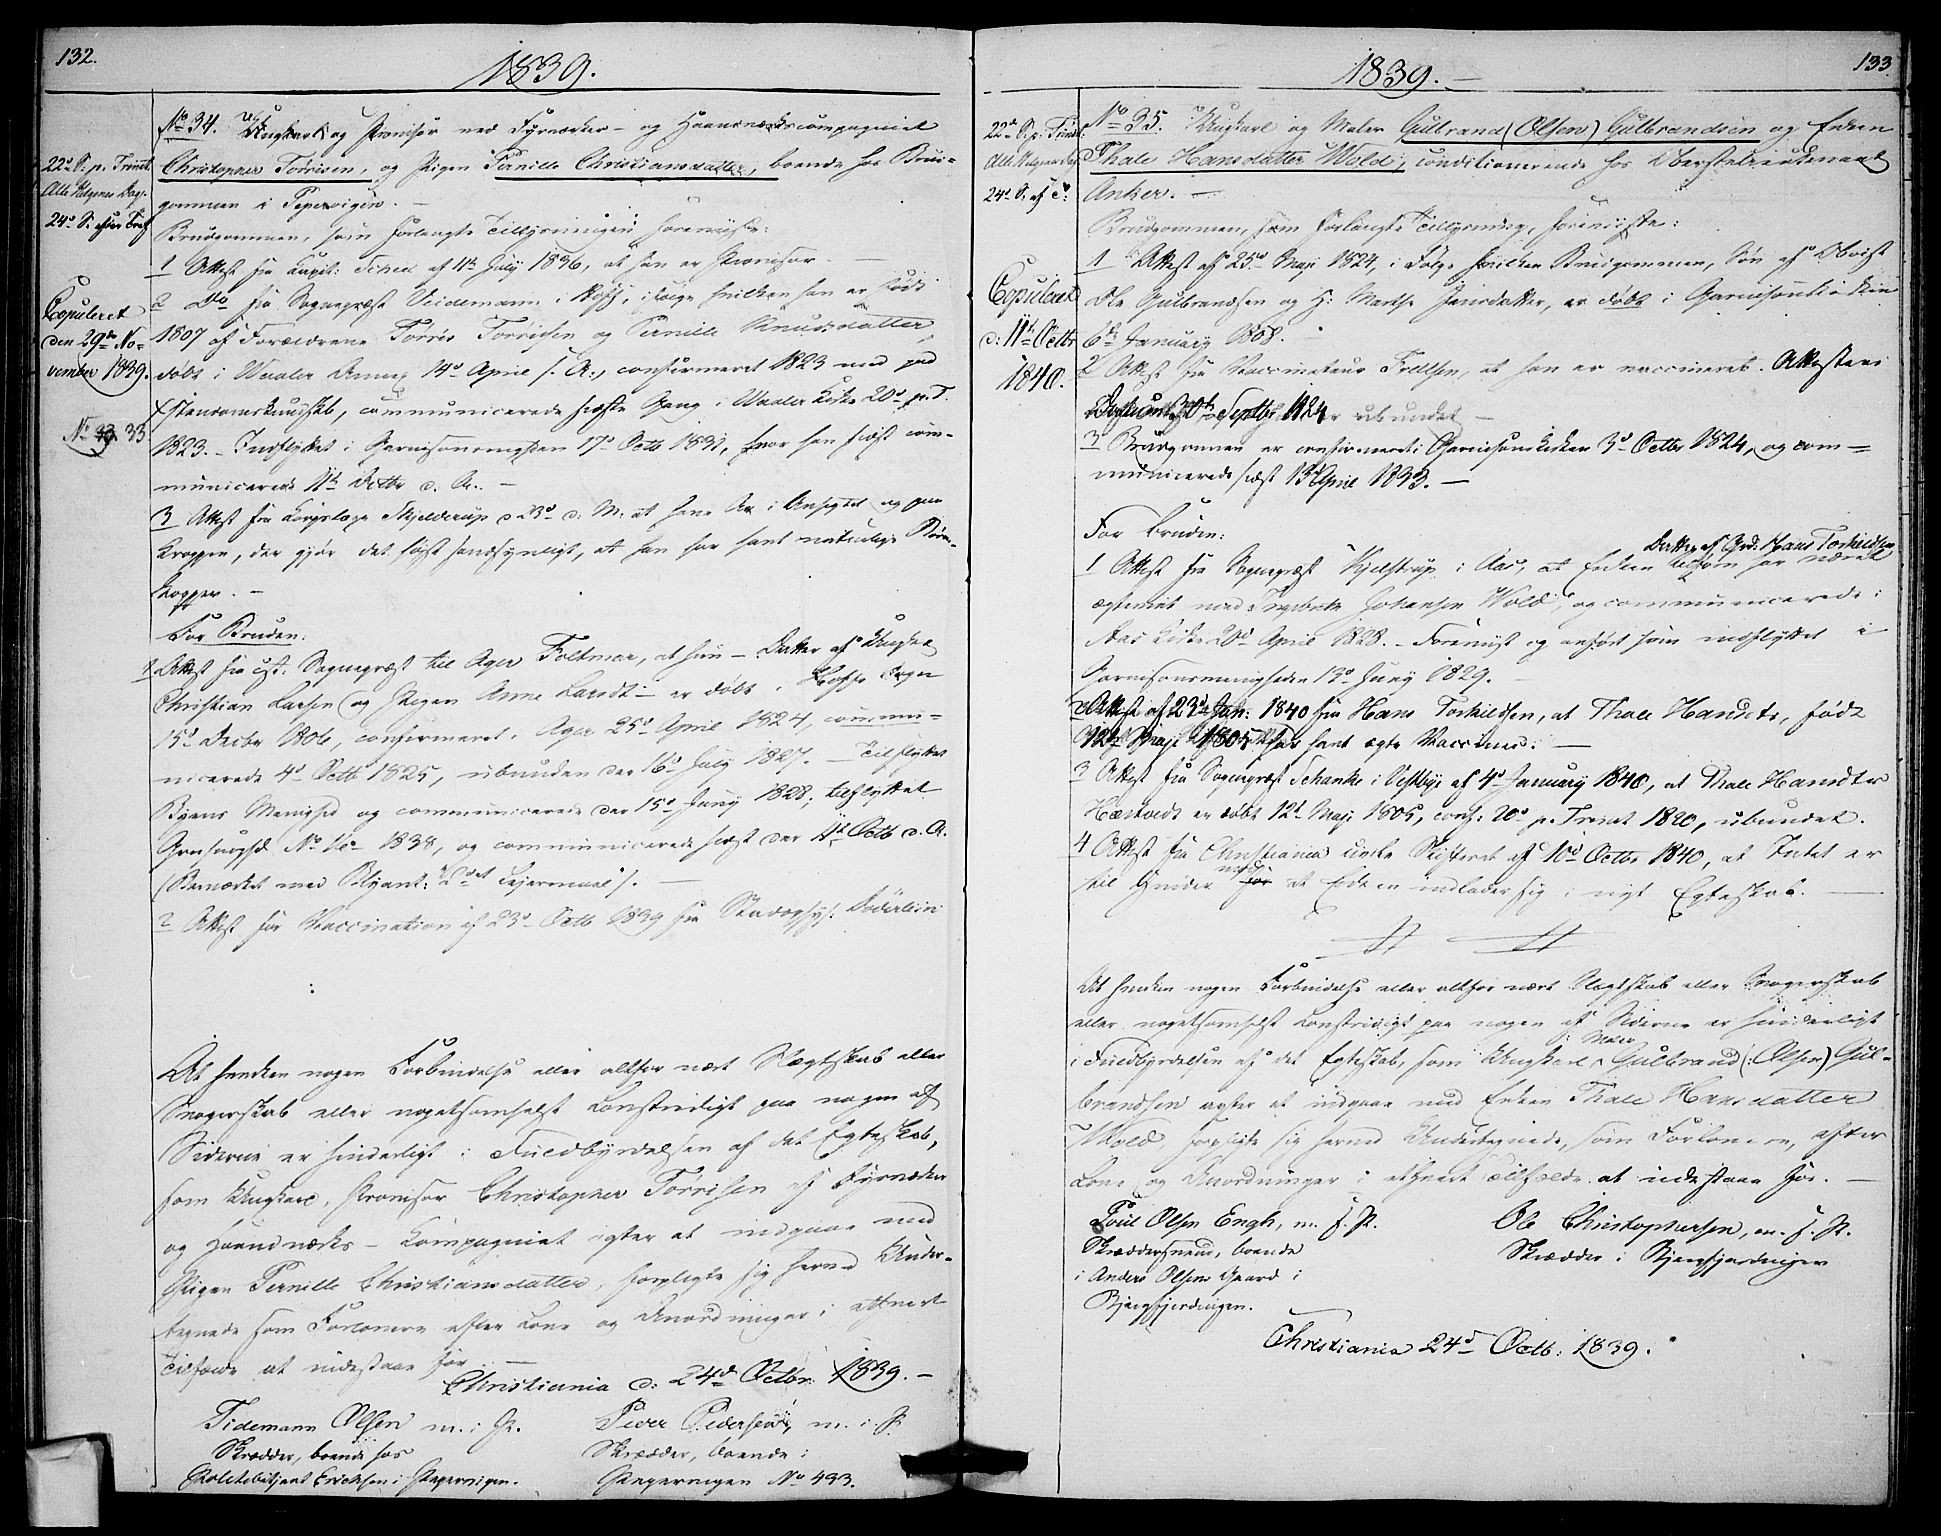 132.
1839.
22d S. p. Trinit.
Alle Helgenes Dag.
24d S. efter Tref
Copuleret
den 29de No-
vember 1839.
No 33
No 34. Ungkarl og Provisor ved Fyrværker- og Haandværkscompagniet
Christopher Torrisen, og Pigen Pernille Christiansdatter, boende hos Brud-
gommen i Pipervigen. —
Brudgommen, som forlangte Tillysningen foreviiste:
1 Attest fra Capit: af 11te July 1836, at han er Provisor. —
2 Do fra Sognepræst Veidemann i Hoff, ifølge hvilken han er født
1807 af Forældrene Torris Torrisen og Pernille Knudsdatter,
døbt i Waaler Annex 14d April s. A., confirmeret 1823 med god
Christendomskundskab, communicerede første Gang i Waaler Kirke 20d p. T.
1823. – Indflyttet i Garnisonsmenigheden 17d Octb 1831, hvor han sidst com-
municerede 11te Octbr d. A. —
3 Attest fra Corpslæge Skjelderup d 23d d. M. at have Ar i Ansigtet og paa
Kroppen, der gjør det høist sandsynligt, at han har havt naturlige Børne-
kopper. —
For Bruden:
1 Attest fra cst. Sognepræst til Ager Foltmar, at hun – Datter af Ungkarl
Christian Larsen og Pigen Anne Larsdt – er døbt i Hoffs Sogn
15d Decbr 1806, confirmeret i Ager 25d April 1824, commu-
nicerede 4d Octb 1825, ubunden der 16d July 1827. – Tilflyttet
Byens Menighed og communicerede der 15d Juny 1828, tilflyttet
No 1838, og communicerede sidst der 11te Octb d. A.
(Bemærket med Leiermaal). —
2 Attest for Vaccination af 23d Octb 1839 fra Stadsphys: Döderlein
At hverken nogen Forbindelse eller altfor nært Slægtskab eller
Svogerskab eller nogetsomhelst Lovstridigt paa nogen af
Siderne er hinderligt i Fuldbyrdelsen af det Egteskab,
som Ungkarl, Provisor Christopher Torrisen af Fyrværker
og Haandværks-Kompagniet agter at indgaae med
Pigen Pernille Christiansdatter, forpligte sig herved Under-
tegnede som Forlovere efter Lov og Anordninger i ethvert
Tilfælde at indestaae for. —
Christiania d: 24de Octbr: 1839. —
Tidemann Olsen m. i. P.
Skrædder, boende hos
Politibetjent Ericksen i Pipervigen.
Peder Pedersen, m. i. P.
Skrædder, boende i
Pipervigen No 493.
133
1839. —
22d S. p. Trinit.
Alle Helgens Dag
24d S. af d:
Copuleret
d: 11te Octbr
1840.
No 35. Ungkarl og Maler Gulbrand (Olsen) Gulbrandsen og Enken
Thale Hansdatter Wold, conditionerende hos Oberstlieutenant
Anker. —
Brudgommen, som forlangte Tillysning, foreviiste:
1 Attest af 25d Maj 1824, i Følge hvilken Brudgommen, Søn af
Ole Gulbrandsen og H: Marthe Jensdatter, er døbt i Garnisonskirken
6te January 1808. —
2 Attest fra Vaccinateur Fredlsen, at han er vaccineret. Attesten
Septbr 1824 ubundet —
3 Brudgommen er confirmeret i Garnisonskirken 3d Octbr 1824, og com-
municerede sidst 13d April 1833. —
For Bruden:
Datter af Grd: Hans Torkildsen
1 Attest fra Sognepræst Kjelstrup i Aas, at Enken som har været
ægteviet med Ingebreth Johansen Wold, og communicerede i
Aas Kirke 20d April 1828. – Foreviist og anført som indflyttet i
Garnisonsmenigheden 13d Juny 1829. —
2 Attest af 23d Jan: 1840 fra Hans Torkildsen, at Thale Hansdtr, født
12te Maj 1805 har havt ægte Vacciner. —
3 Attest fra Sognepræst Schanke i Vestbye af 4d January 1840, at Thale Hansdtr
Hæstvedt er døbt 12te Maj 1805, conf: 20d p. Trinit 1820, ubundet.
4 Attest fra Christiania Skifteret af 10d Octbr 1840, at Intet er
til Hinder ved at Enken indlader sig i nyt Egteskab. —
At hverken nogen Forbindelse eller altfor nært Slægtskab eller Svogerskab
eller nogetsomhelst Lovstridigt paa nogen af Siderne er hinderligt
i Fuldbyrdelsen af det Egteskab, som Ungkarl Maler Gulbrand (: Olsen) Gul-
brandsen agter at indgaae med Enken Thale Hansdatter
Wold, forpligte sig herved Undertegnede, som Forlovere, efter
Lov og Anordninger i ethvert Tilfælde at indestaae for. —
Poul Olsen Engh, m. i. P.
Skræddersvend, boende
i Anders Olsens Gaard i
Bjergfjerdingen.
Ole Christophersen, m. i. P.
Skrædder i Bjergfjerdingen
Christiania 24d Octb: 1839.